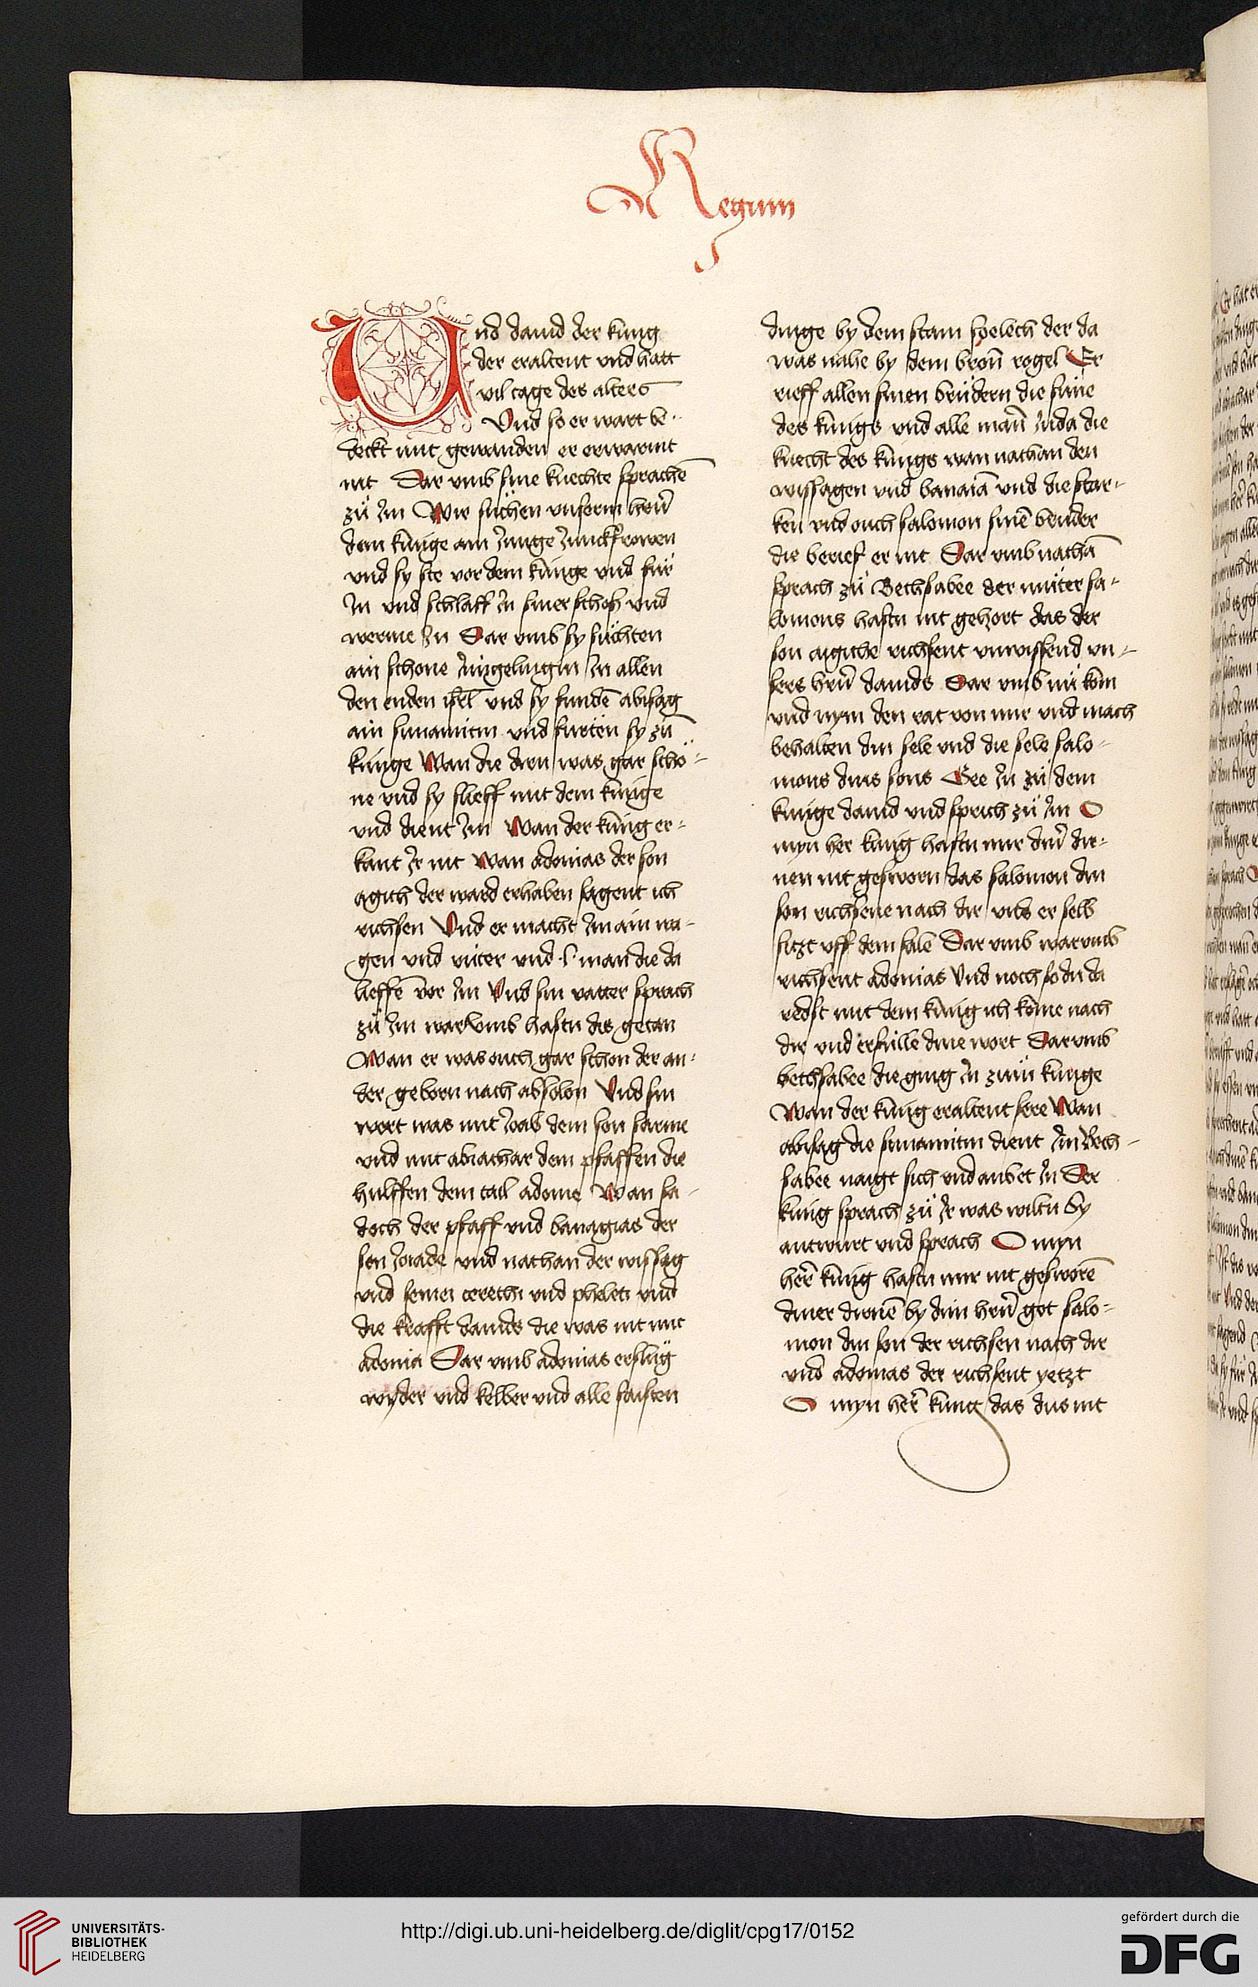 Regum
Und dauid der kúnig
der eraltent vnd hatt
vil tage des alters
Vnd so er wart be-
deckt mit gewanden er erwarmt
nit Dar vmb sine knechte sprachē
zů Im Wir sůchen vnserm herr̄
dem kúnige ain Junge Junckfrowen
vnd sy ste vor dem kúnige vnd fůr
In vnd schlaff In siner schoß vnd
werme In Dar vmb sy sůchten
ain schone Jungelingin In allen
den enden isrl̄ vnd sy fundē abisag
ain sunamitin vnd fürten sy zů
kúnige Wan die dirn was gar schö-
ne vnd sy slieff mit dem kúnige
vnd dient Im Wan der kúnig er-
kant Ir nit Wan adonias der son
agith der ward erhaben sagent ich
richsen Vnd er macht Im ain wa-
gen vnd ritter vnd ·l· man die da
lieffē vor Im Vnd sin vatter sprach
zů Im warvmb hastu dis getan
Wan er was ouch gar schon der an-
der geborn nach absolon Vnd sin
wort was mit Joab dem son saruie
vnd mit abiachar dem pfaffen die
hulffen dem tail adonie Wan sa-
doch der pfaff vnd banagias der
son Joiade vnd nathan der wissag
vnd semei cerethi vnd pheleti vnd
die krafft dauids die was nit mit
adonia Dar vmb adonias erslůg
wyder vnd kelber vnd alle faisten
dinge by dem stain zoelech der da
was nahe by dem bron̄ rogel Er
rieff allen sinen brüdern die süne
des kúnigs vnd alle man̄ Juda die
knecht des kúnigs wan nathan den
wissagen vnd banaiā vnd die star-
ken vnd ouch salomon sinē brüder
die berief er nit Dar vmb nathā
sprach zů Bethsabee der můter sa-
lomons hastu nit gehort das der
son agithe richsent vnwissend vn-
sers herr̄ dauids Dar vmb nu kom
vnd nym den rat von mir vnd mach
behalten din sele vnd die sele salo-
mons dins sons Gee In zů dem
kunige dauid vnd sprich zů Im O
myn her kúnig hastu mir din̄ die-
nen nit gesworn das salomon din
son richsene nach dir vnd er selb
sitzt vff dem salē Dar vmb warvmb
richsent adonias Vnd noch so du da
redst mit dem kúnig ich kome nach
dir vnd erfülle dine wort Darvmb
bethsabee die ging In zům kúnige
Wan der kúnig eraltent sere Wan
abisag die sunamitin dient Im Beth-
sabee naigt sich vnd anbet In Der
kúnig sprach zů Ir was wiltu Sy
antwurt vnd sprach O myn
herē kúnig hastu mir nit gesworē
diner dienē by dim herr̄ got salo-
mon din son der richsen nach dir
vnd adonias der richsent yetzt
O myn herē kúnig das dus nit
UNIVERSITÄTS-
BIBLIOTHEK
HEIDELBERG
http://digi.ub.uni-heidelberg.de/diglit/cpg17/0152
gefördert durch die
DFG